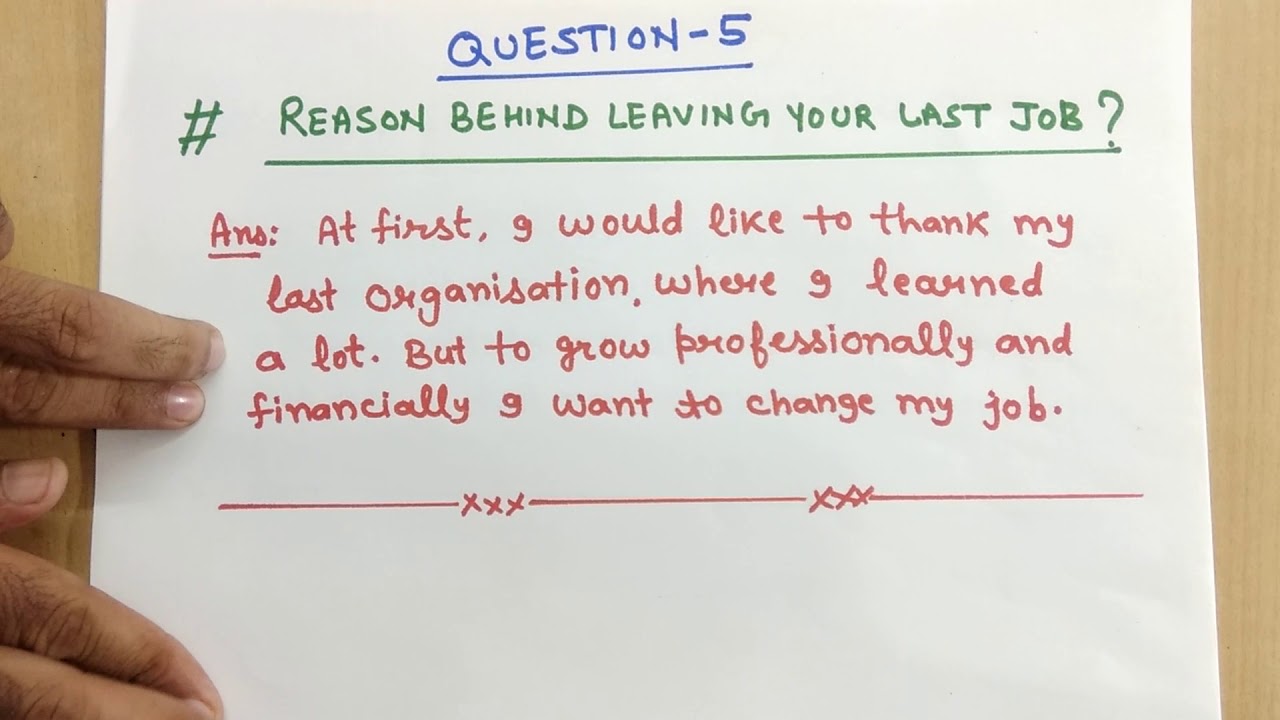 QUESTION-5
# REASON BEHIND LEAVING YOUR LAST JOB?
Ans: At first, I would like to thank my
last organisation, where I learned
a lot. But to grow professionally and
financially I want to change my job.
xxx xxx